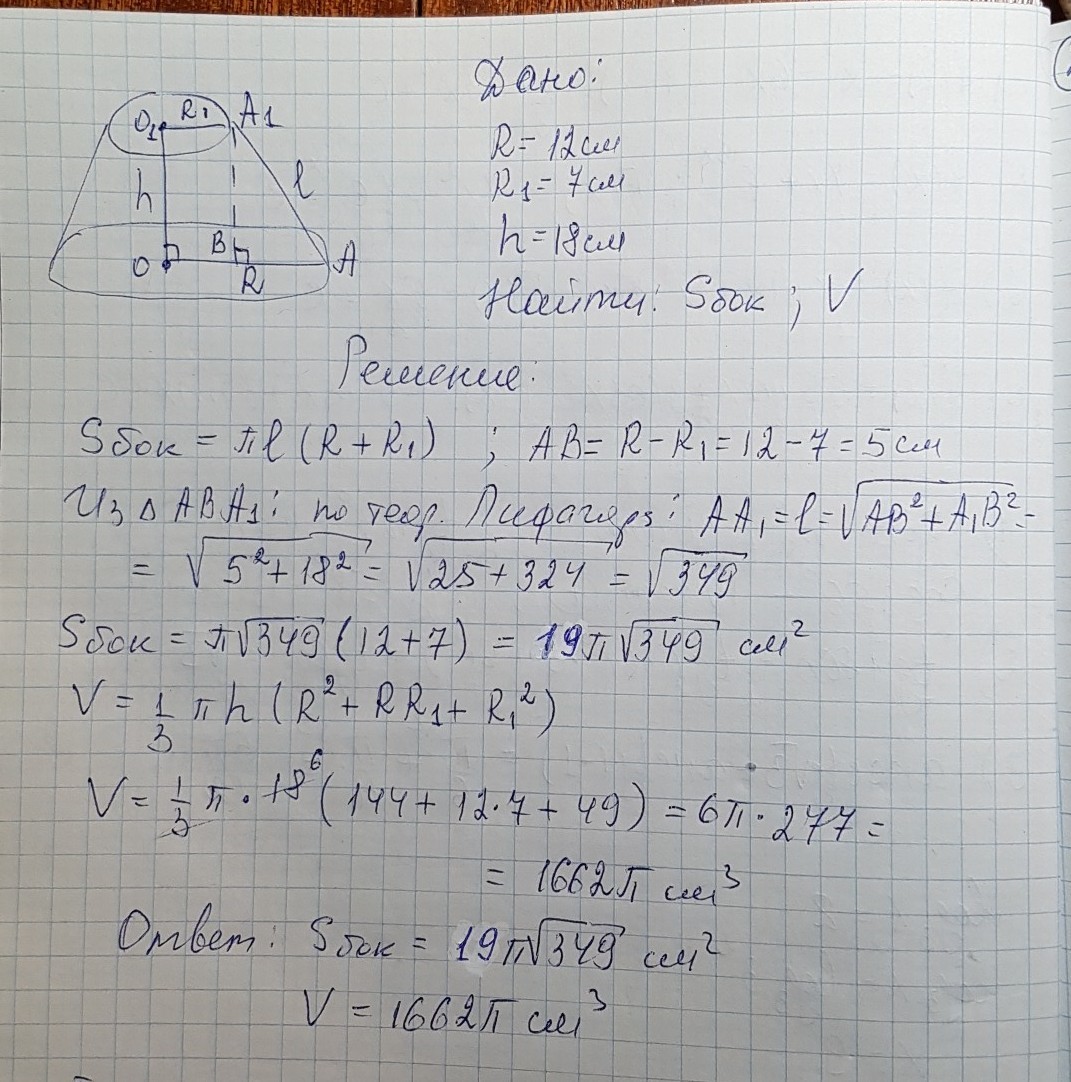 Дано:
O₁ R₁ A₁
R = 12 см
R₁ = 7 см
h l
h = 18 см
O B R A
Найти: Sбок ; V
Решение:
Sбок = πl (R + R₁) ; AB = R − R₁ = 12 − 7 = 5 см
Из Δ ABA₁: по теор. Пифагора: AA₁ = l = √(AB² + A₁B²) =
= √(5² + 18²) = √(25 + 324) = √349
Sбок = π√349 (12 + 7) = 19π√349 см²
V = 1/3 π h (R² + RR₁ + R₁²)
V = 1/3 π · 18 ⁶ (144 + 12·7 + 49) = 6π · 277 =
= 1662π см³
Ответ: Sбок = 19π√349 см²
V = 1662π см³